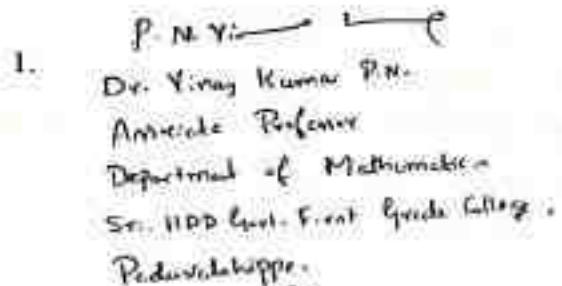 P. N. Vi
1.
Dr. Vinay Kumar P.N.
Associate Professor
Department of Mathematics
Sri. HDD Govt. First Grade College,
Paduvalahippe.